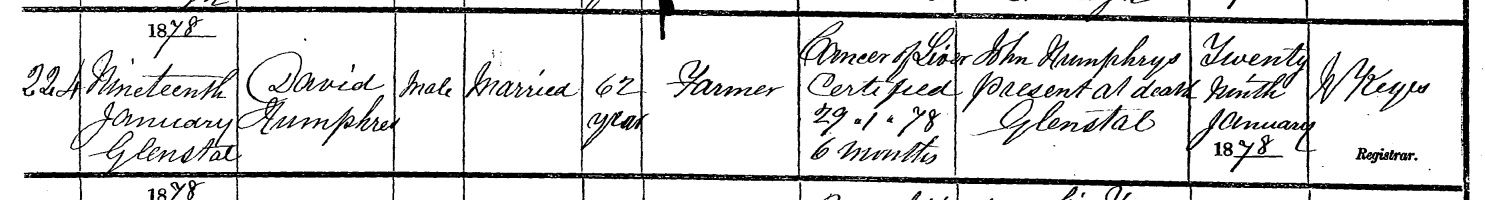 1878
224
Nineteenth
January
Glenstal
David
Humphres
Male
Married
62
year
Farmer
Cancer of Liver
Certified
29 . 1 . 78
6 months
John Humphrys
Present at death
Glenstal
Twenty
Ninth
January
1878
W Keyes
Registrar.
1878